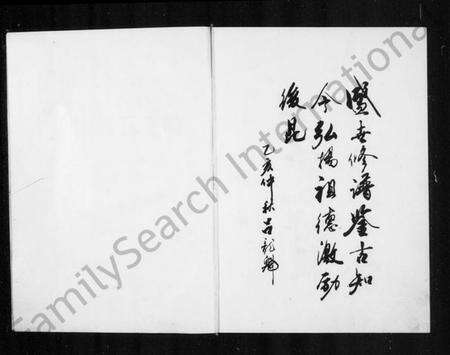 盛世修谱鉴古知
今弘揚祖德激励
後昆
乙亥仲秋吕
FamilySearch International